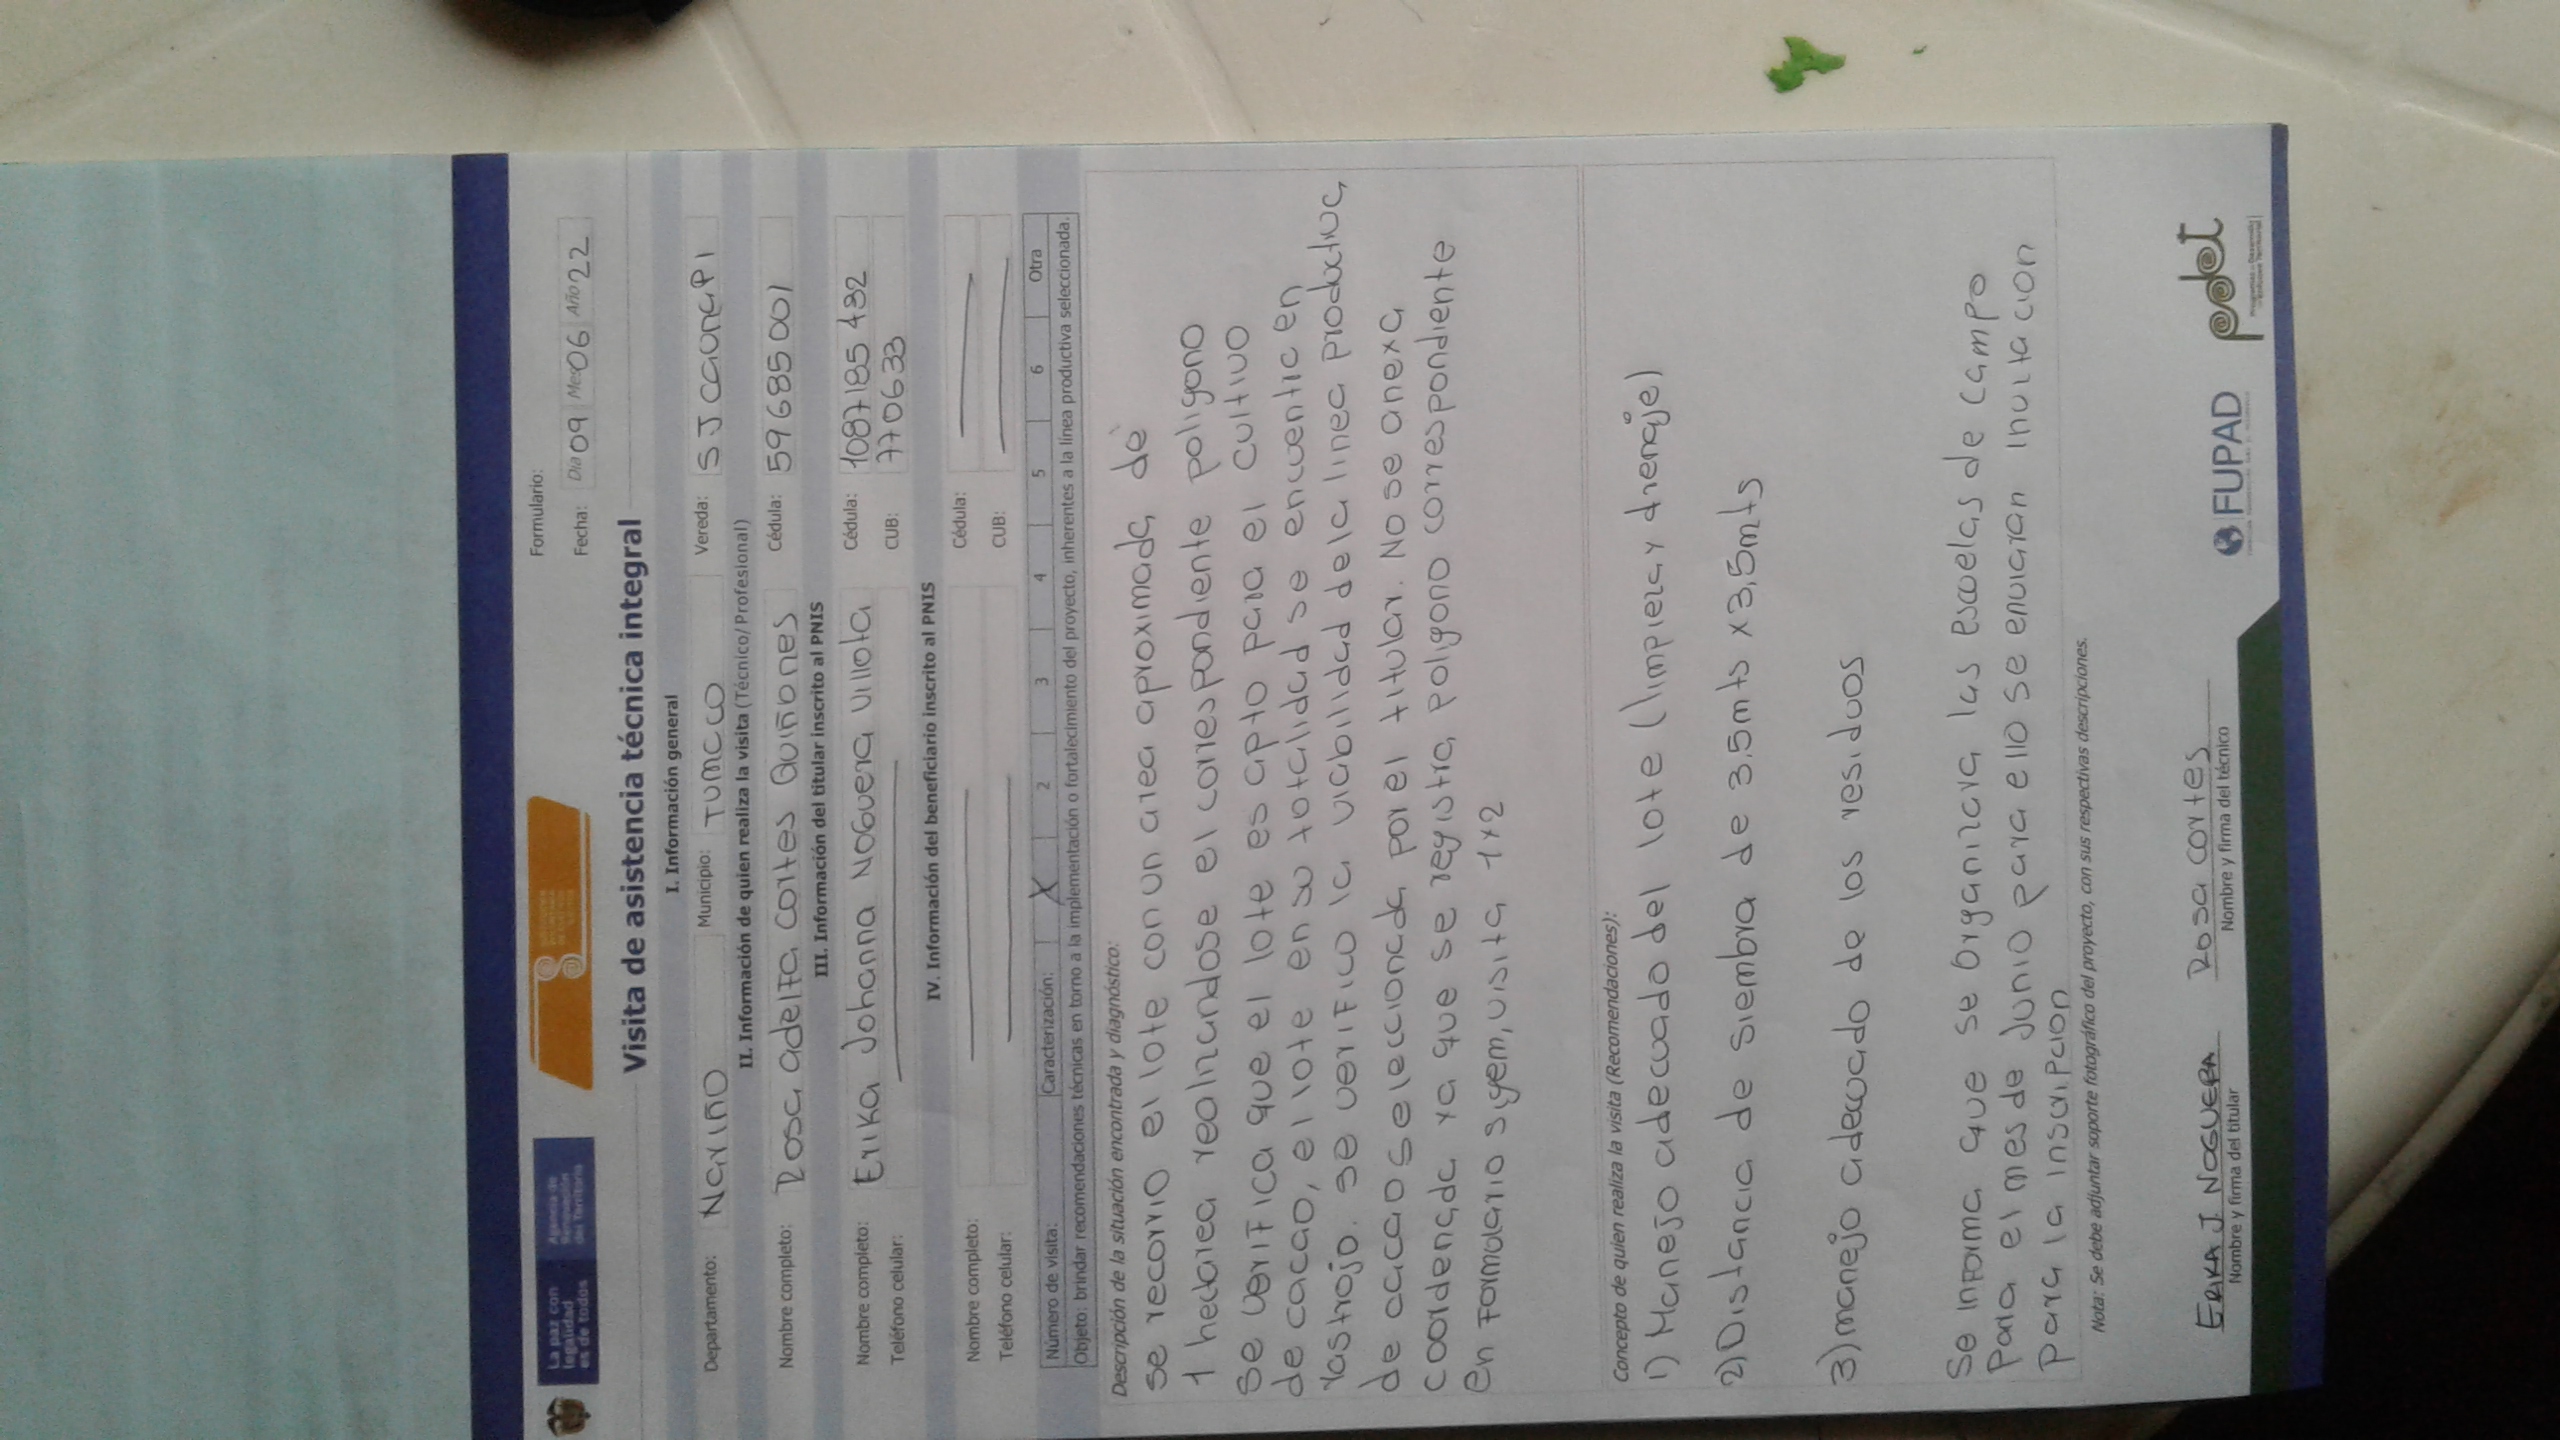 La paz con
legalidad
es de todos
Agencia de
Renovación
del Territorio
Formulario:
Fecha: Día 09 Mes 06 Año 22
Visita de asistencia técnica integral
I. Información general
Departamento: Nariño Municipio: Tumaco Vereda: SJ caonapi
II. Información de quien realiza la visita (Técnico/Profesional)
Nombre completo: Rosa adelfa cortes Quiñones Cédula: 59685001
III. Información del titular inscrito al PNIS
Nombre completo: Erika Johanna Noguera Villota Cédula: 1087185432
Teléfono celular: CUB: 770633
IV. Información del beneficiario inscrito al PNIS
Nombre completo: Cédula:
Teléfono celular: CUB:
Número de visita: Caracterización: X 2 3 4 5 6 Otra
Objeto: brindar recomendaciones técnicas en torno a la implementación o fortalecimiento del proyecto, inherentes a la línea productiva seleccionada.
Descripción de la situación encontrada y diagnóstico:
se recorrio el lote con un area aproximada de
1 hectarea realizandose el correspondiente poligono
Se verifica que el lote es apto para el cultivo
de cacao, el lote en su totalidad se encuentra en
rastrojo. se verifico la viabilidad de la linea productiva
de cacao seleccionada por el titular. No se anexa
coordenada ya que se registra poligono correspondiente
en Formulario sygem, visita 1x2
Concepto de quien realiza la visita (Recomendaciones):
1) Manejo adecuado del lote (limpieza y drenaje)
2) Distancia de siembra de 3.5mts x 3,5mts
3) manejo adecuado de los residuos
Se informa que se organizara las escuelas de campo
para el mes de Junio para ello se enviaran invitacion
para la inscripcion
Nota: Se debe adjuntar soporte fotográfico del proyecto, con sus respectivas descripciones.
ERIKA J. NOGUERA Rosa cortes
Nombre y firma del titular Nombre y firma del técnico
FUPAD
pdet